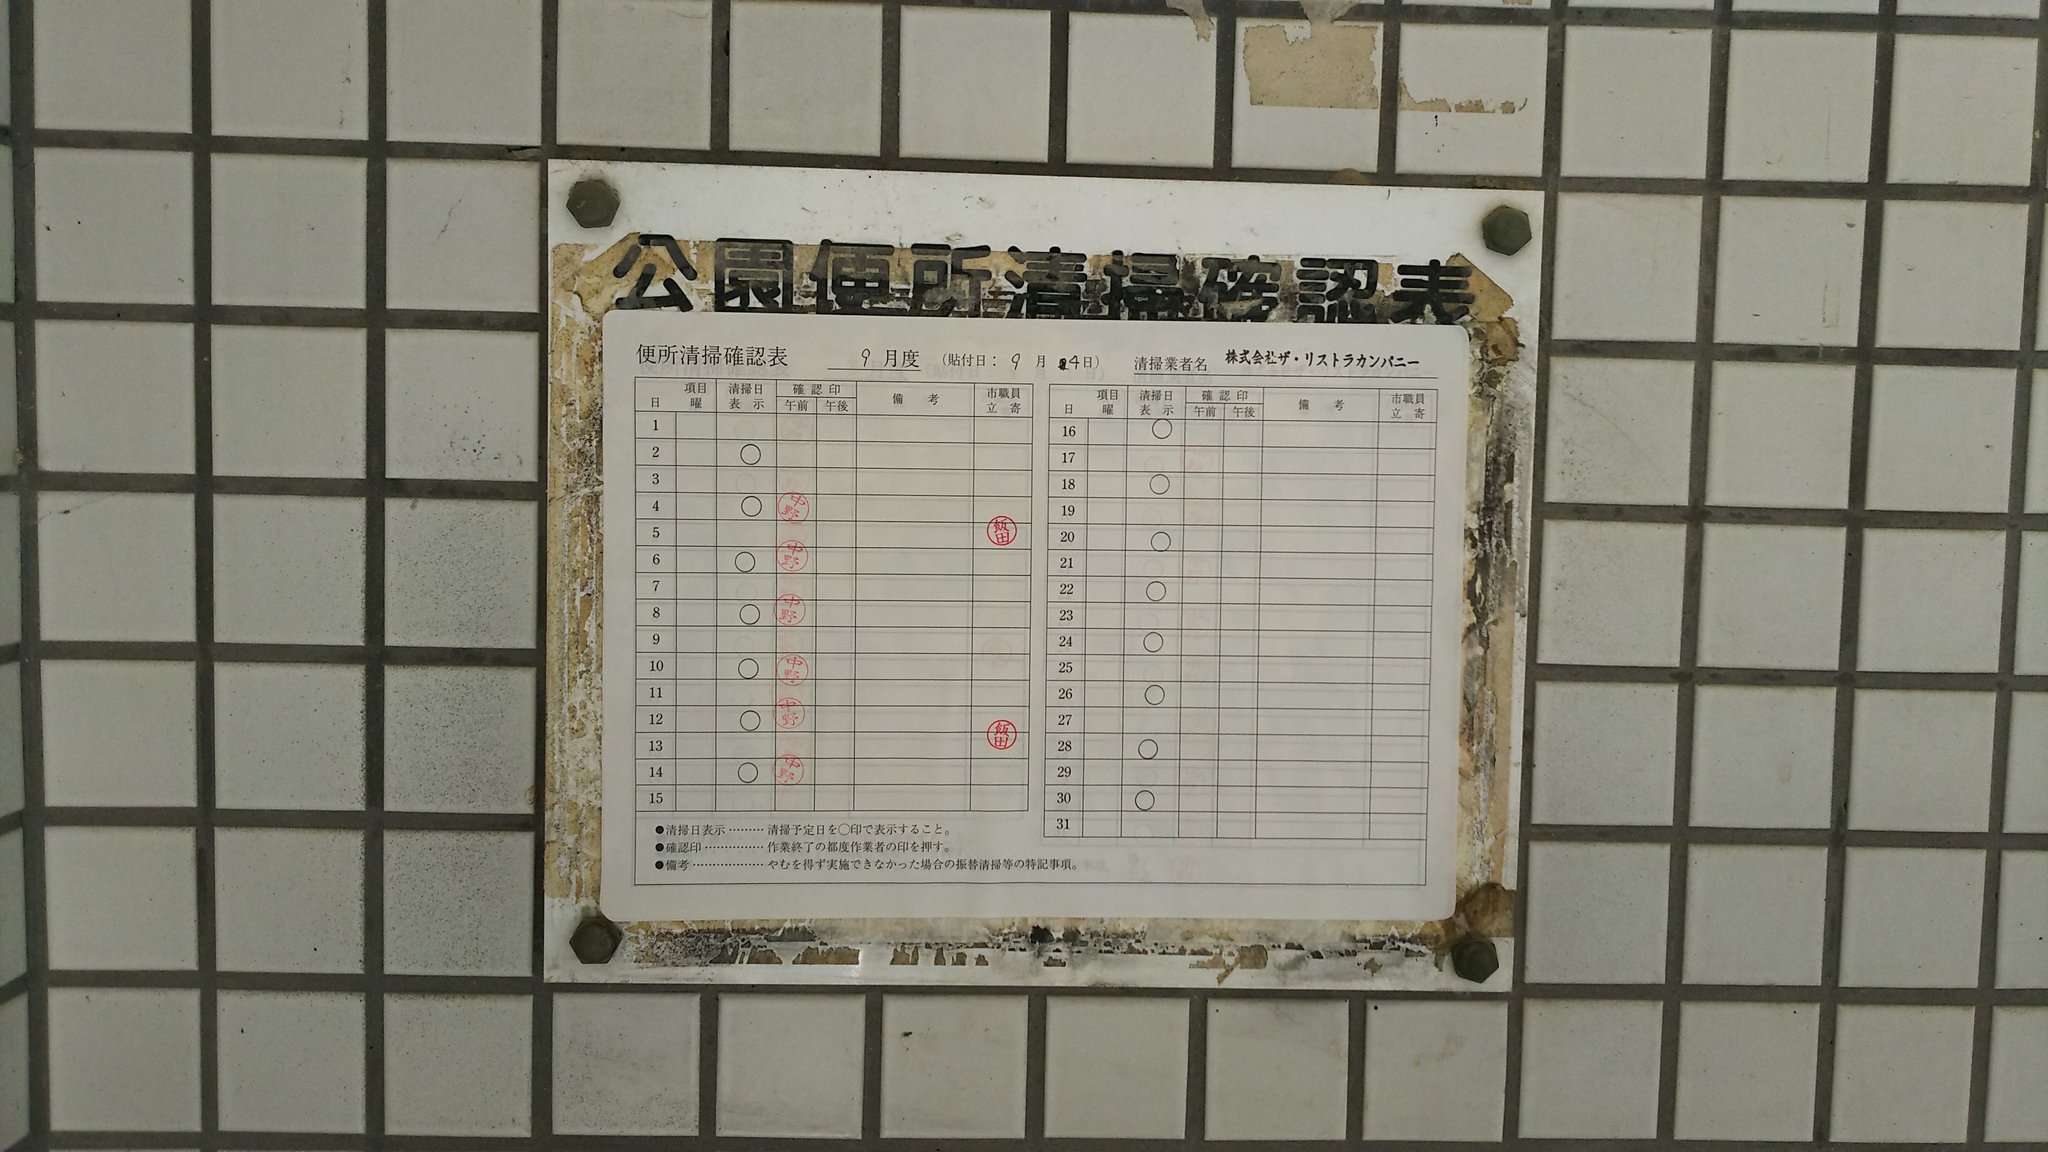 公園便所清掃確認表
便所清掃確認表 9月度 (貼付日: 9月 4日) 清掃業者名 株式会社ザ・リストラカンパニー
日 項目 曜 清掃日表示 確認印 午前 午後 備考 市職員立寄
1
2 ○
3
4 ○ 中野
5 飯田
6 ○ 中野
7
8 ○ 中野
9
10 ○ 中野
11
12 ○ 中野
13 飯田
14 ○ 中野
15
日 項目 曜 清掃日表示 確認印 午前 午後 備考 市職員立寄
16 ○
17
18 ○
19
20 ○
21
22 ○
23
24 ○
25
26 ○
27
28 ○
29
30 ○
31
●清掃日表示………清掃予定日を○印で表示すること。
●確認印……………作業終了の都度作業者の印を押す。
●備考………………やむを得ず実施できなかった場合の振替清掃等の特記事項。